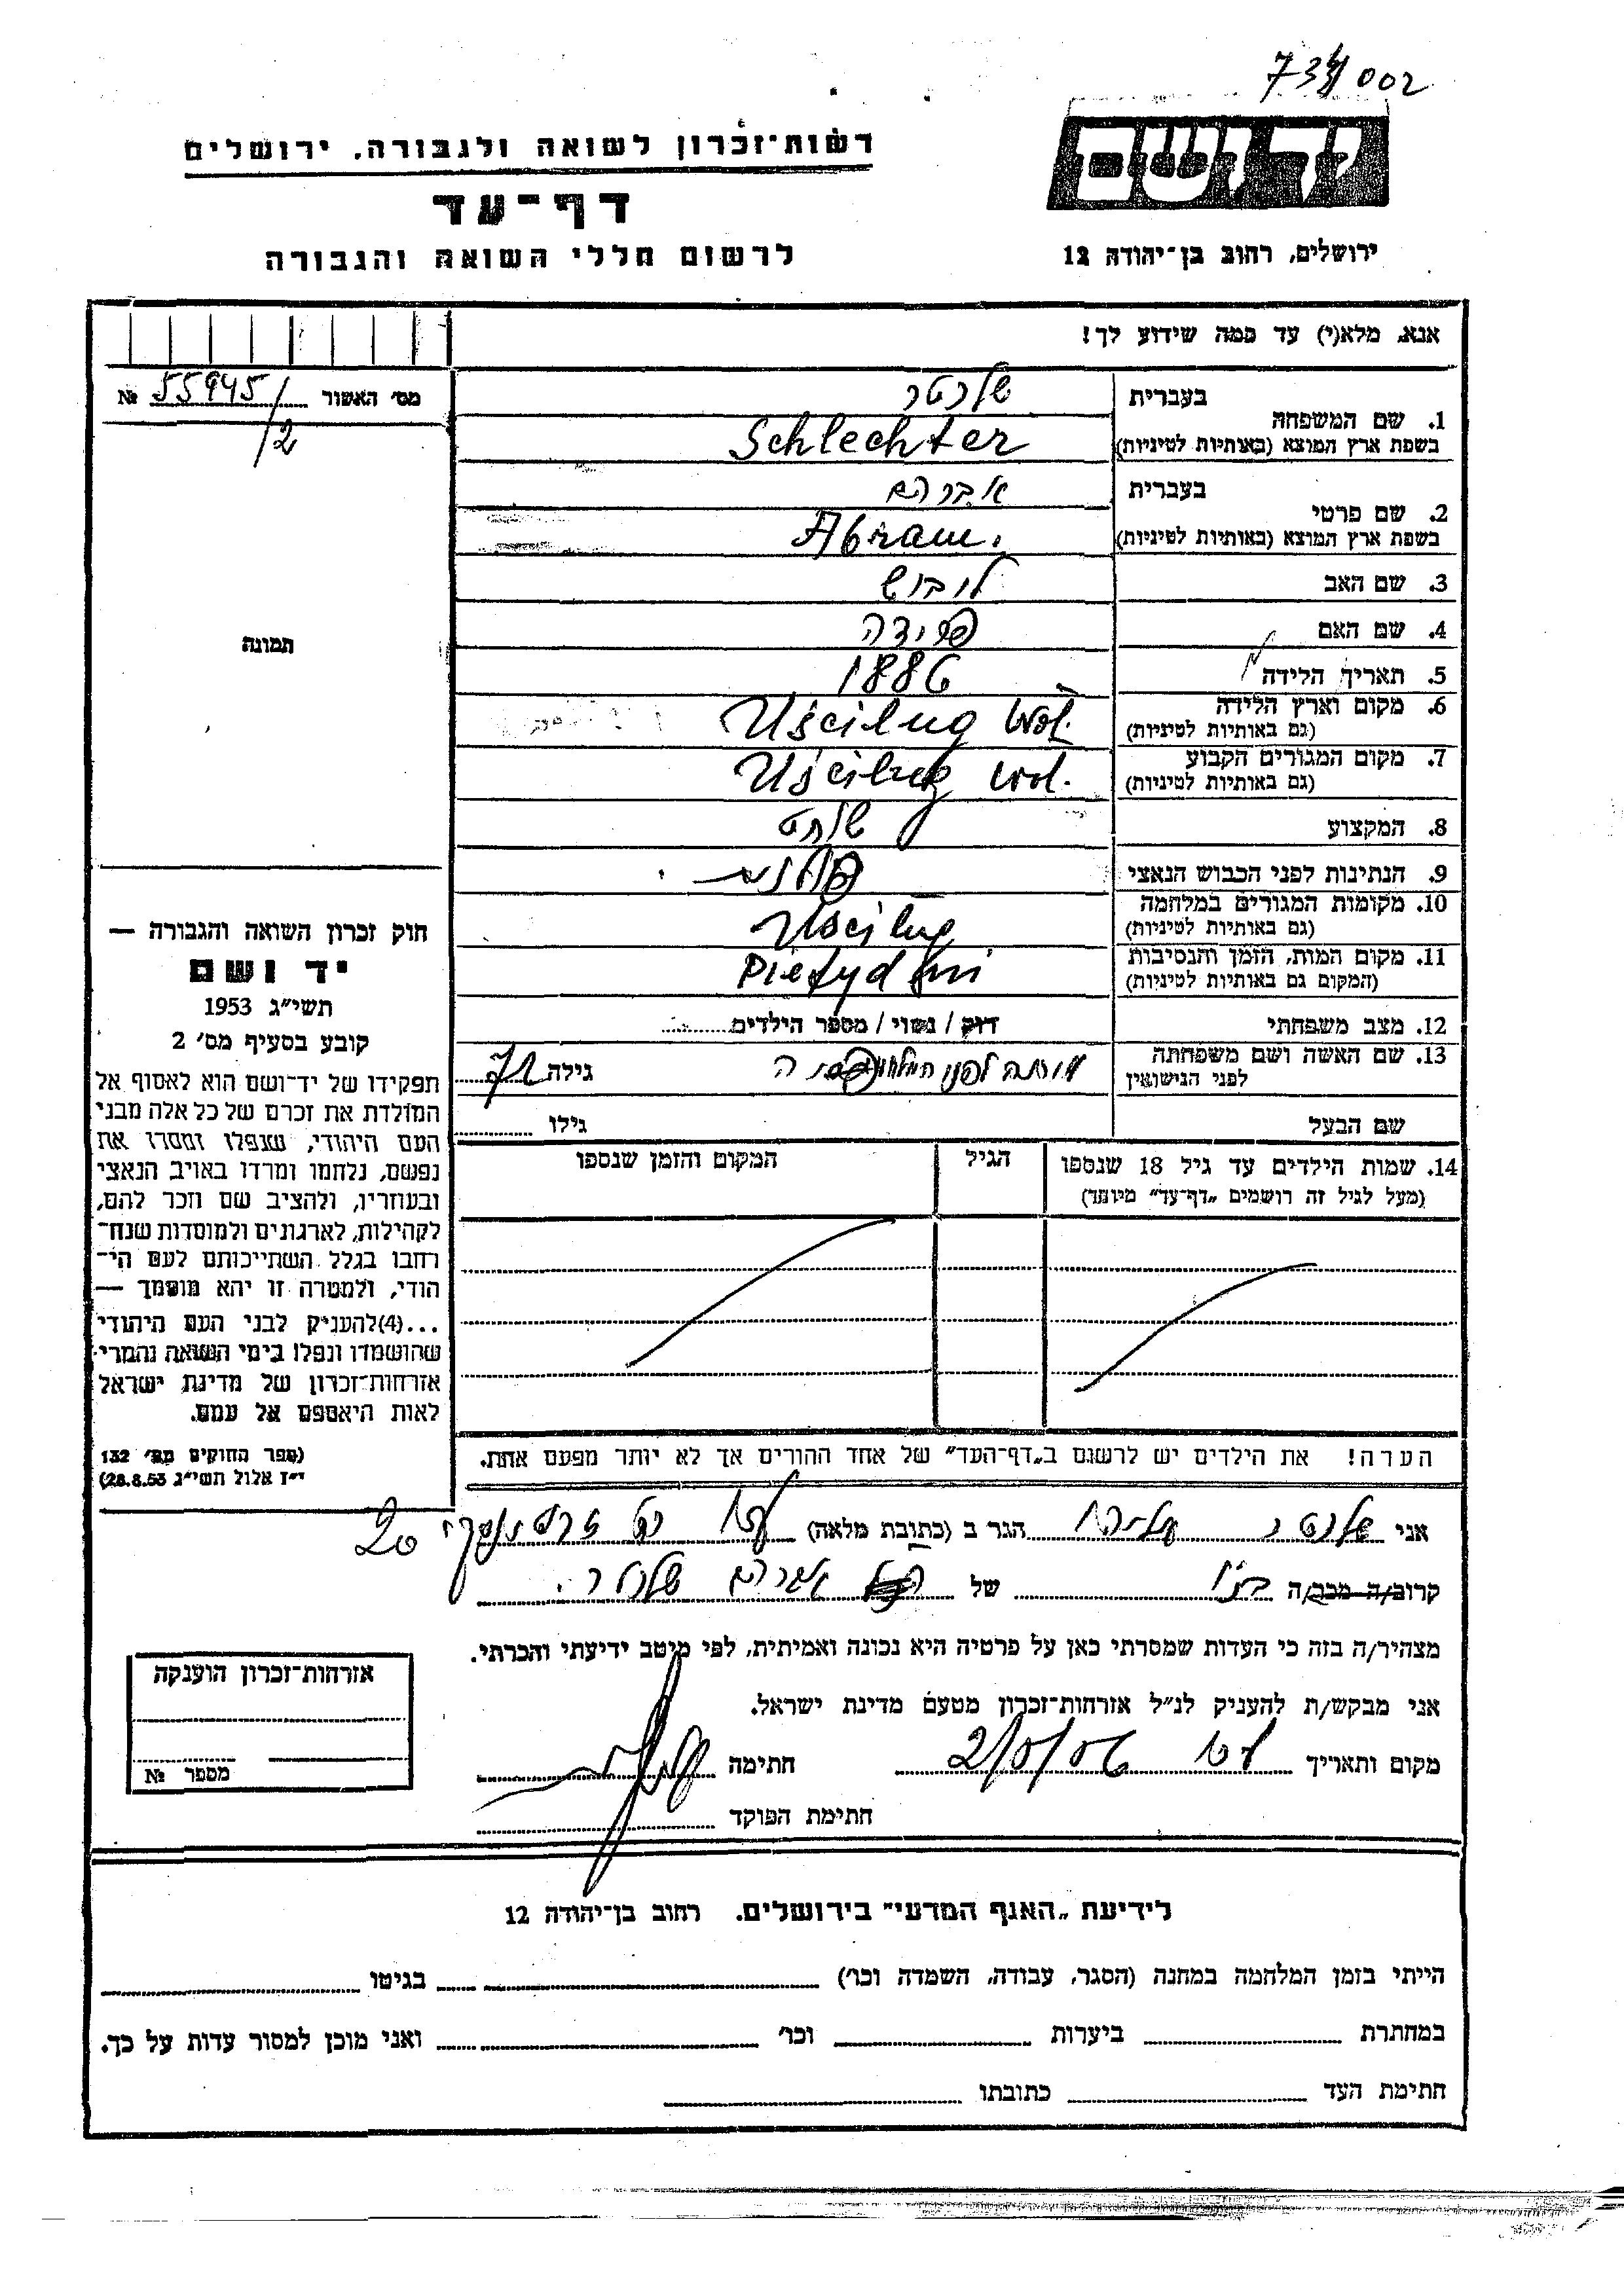 734/002
רשות־זכרון לשואה ולגבורה, ירושלים
יד ושם
דף־עד
לרשום חללי השואה והגבורה
ירושלים, רחוב בן־יהודה 12
אנא, מלא(י) עד כמה שידוע לך!
מס׳ האשור 55945/2 №
תמונה
1. שם המשפחה
בעברית שלכטר
בשפת ארץ המוצא (באותיות לטיניות) Schlechter
2. שם פרטי
בעברית אברהם
בשפת ארץ המוצא (באותיות לטיניות) Abram.
3. שם האב ליבוש
4. שם האם פרידה
5. תאריך הלידה 1886
6. מקום וארץ הלידה (גם באותיות לטיניות) Uścilug Wol.
7. מקום המגורים הקבוע (גם באותיות לטיניות) Uścilug Wol.
8. המקצוע שוחט
9. הנתינות לפני הכבוש הנאצי פולנית
10. מקומות המגורים במלחמה (גם באותיות לטיניות) Uscilug
11. מקום המות, הזמן והנסיבות (המקום גם באותיות לטיניות) Piatydni
12. מצב משפחתי רוק / נשוי / מספר הילדים
13. שם האשה ושם משפחתה לפני הנישואין מתה לפני המלחמה גילה
שם הבעל גילו
14. שמות הילדים עד גיל 18 שנספו (מעל לגיל זה רושמים „דף־עד” מיוחד)
הגיל
המקום והזמן שנספו
הערה! את הילדים יש לרשום ב„דף־העד” של אחד ההורים אך לא יותר מפעם אחת.
חוק זכרון השואה והגבורה —
יד ושם
תשי״ג 1953
קובע בסעיף מס׳ 2
תפקידו של יד־ושם הוא לאסוף אל
המולדת את זכרם של כל אלה מבני
העם היהודי, שנפלו ומסרו את
נפשם, נלחמו ומרדו באויב הנאצי
ובעוזריו, ולהציב שם וזכר להם,
לקהילות, לארגונים ולמוסדות שנח־
רבו בגלל השתייכותם לעם הי־
הודי, ולמטרה זו יהא מוסמך —
...(4)להעניק לבני העם היהודי
שהושמדו ונפלו בימי השואה והמרי
אזרחות־זכרון של מדינת ישראל
לאות היאספם אל עמם.
(ספר החוקים מס׳ 132
י״ז אלול תשי״ג 28.8.53)
אני שלכטר הגר ב (כתובת מלאה) 20
קרוב/ה מכר/ה בנו של אברהם שלכטר.
מצהיר/ה בזה כי העדות שמסרתי כאן על פרטיה היא נכונה ואמיתית, לפי מיטב ידיעתי והכרתי.
אני מבקש/ת להעניק לנ״ל אזרחות־זכרון מטעם מדינת ישראל.
מקום ותאריך 2/5/56 חתימה
חתימת הפוקד
אזרחות־זכרון הוענקה
מספר №
לידיעת „האגף המדעי” בירושלים. רחוב בן־יהודה 12
הייתי בזמן המלחמה במחנה (הסגר, עבודה, השמדה וכו׳) בגיטו
במחתרת ביערות וכו׳ ואני מוכן למסור עדות על כך.
חתימת העד כתובתו